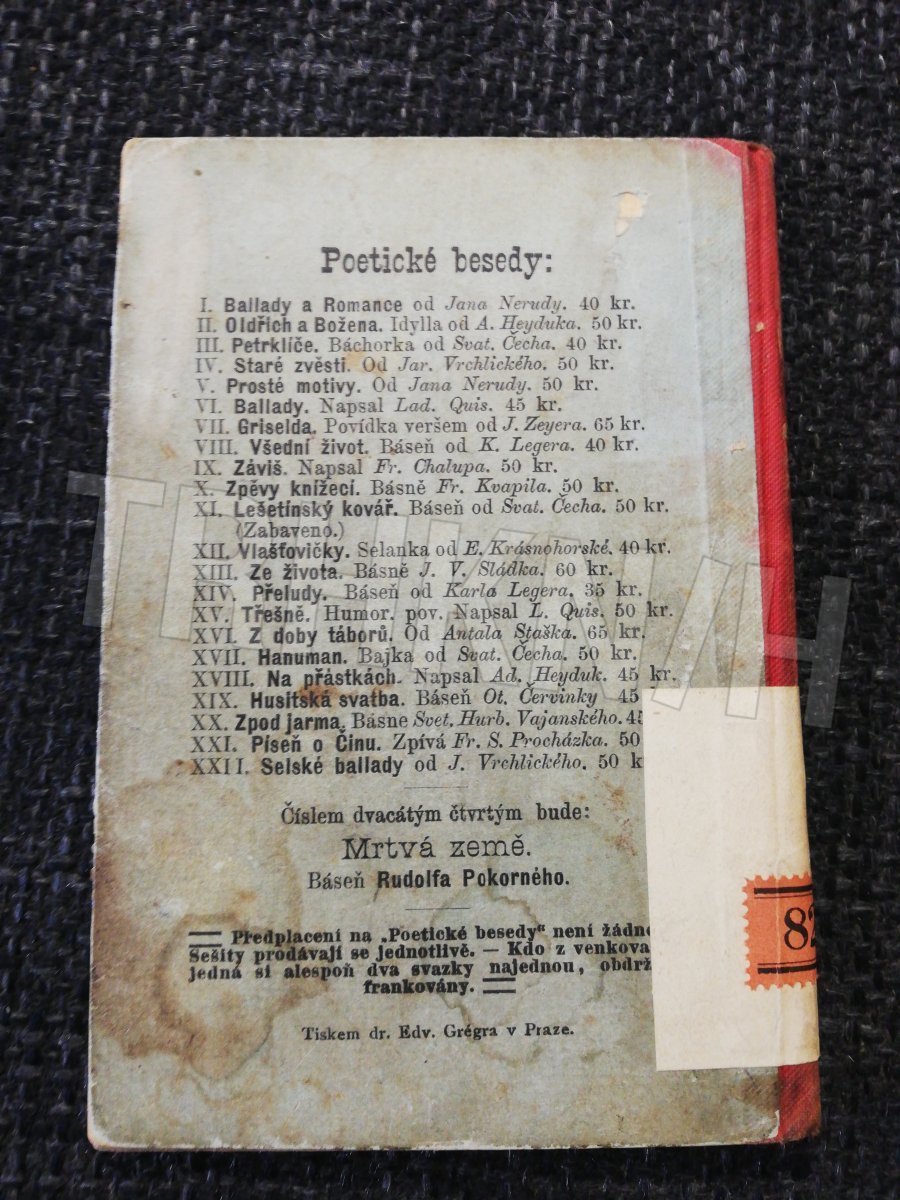 Poetické besedy:
I. Ballady a Romance od Jana Nerudy. 40 kr.
II. Oldřich a Božena. Idylla od A. Heyduka. 50 kr.
III. Petrklíče. Báchorka od Svat. Čecha. 40 kr.
IV. Staré zvěsti. Od Jar. Vrchlického. 50 kr.
V. Prosté motivy. Od Jana Nerudy. 50 kr.
VI. Ballady. Napsal Lad. Quis. 45 kr.
VII. Griselda. Povídka veršem od J. Zeyera. 65 kr.
VIII. Všední život. Báseň od K. Legera. 40 kr.
IX. Záviš. Napsal Fr. Chalupa. 50 kr.
X. Zpěvy knížecí. Básně Fr. Kvapila. 50 kr.
XI. Lešetínský kovář. Báseň od Svat. Čecha. 50 kr.
(Zabaveno.)
XII. Vlašťovičky. Selanka od E. Krásnohorské. 40 kr.
XIII. Ze života. Básně J. V. Sládka. 60 kr.
XIV. Přeludy. Báseň od Karla Legera. 35 kr.
XV. Třešně. Humor. pov. Napsal L. Quis. 50 kr.
XVI. Z doby táborů. Od Antala Staška. 65 kr.
XVII. Hanuman. Bajka od Svat. Čecha. 50 kr.
XVIII. Na přástkách. Napsal Ad. Heyduk. 45 kr.
XIX. Husitská svatba. Báseň Ot. Červinky 45
XX. Zpod jarma. Básne Svet. Hurb. Vajanského. 45
XXI. Píseň o Činu. Zpívá Fr. S. Procházka. 50
XXII. Selské ballady od J. Vrchlického. 50 k
Číslem dvacátým čtvrtým bude:
Mrtvá země.
Báseň Rudolfa Pokorného.
Předplacení na „Poetické besedy“ není žádné
Sešity prodávají se jednotlivě. — Kdo z venkova
jedná si alespoň dva svazky najednou, obdrž
frankovány.
Tiskem dr. Edv. Grégra v Praze.
82